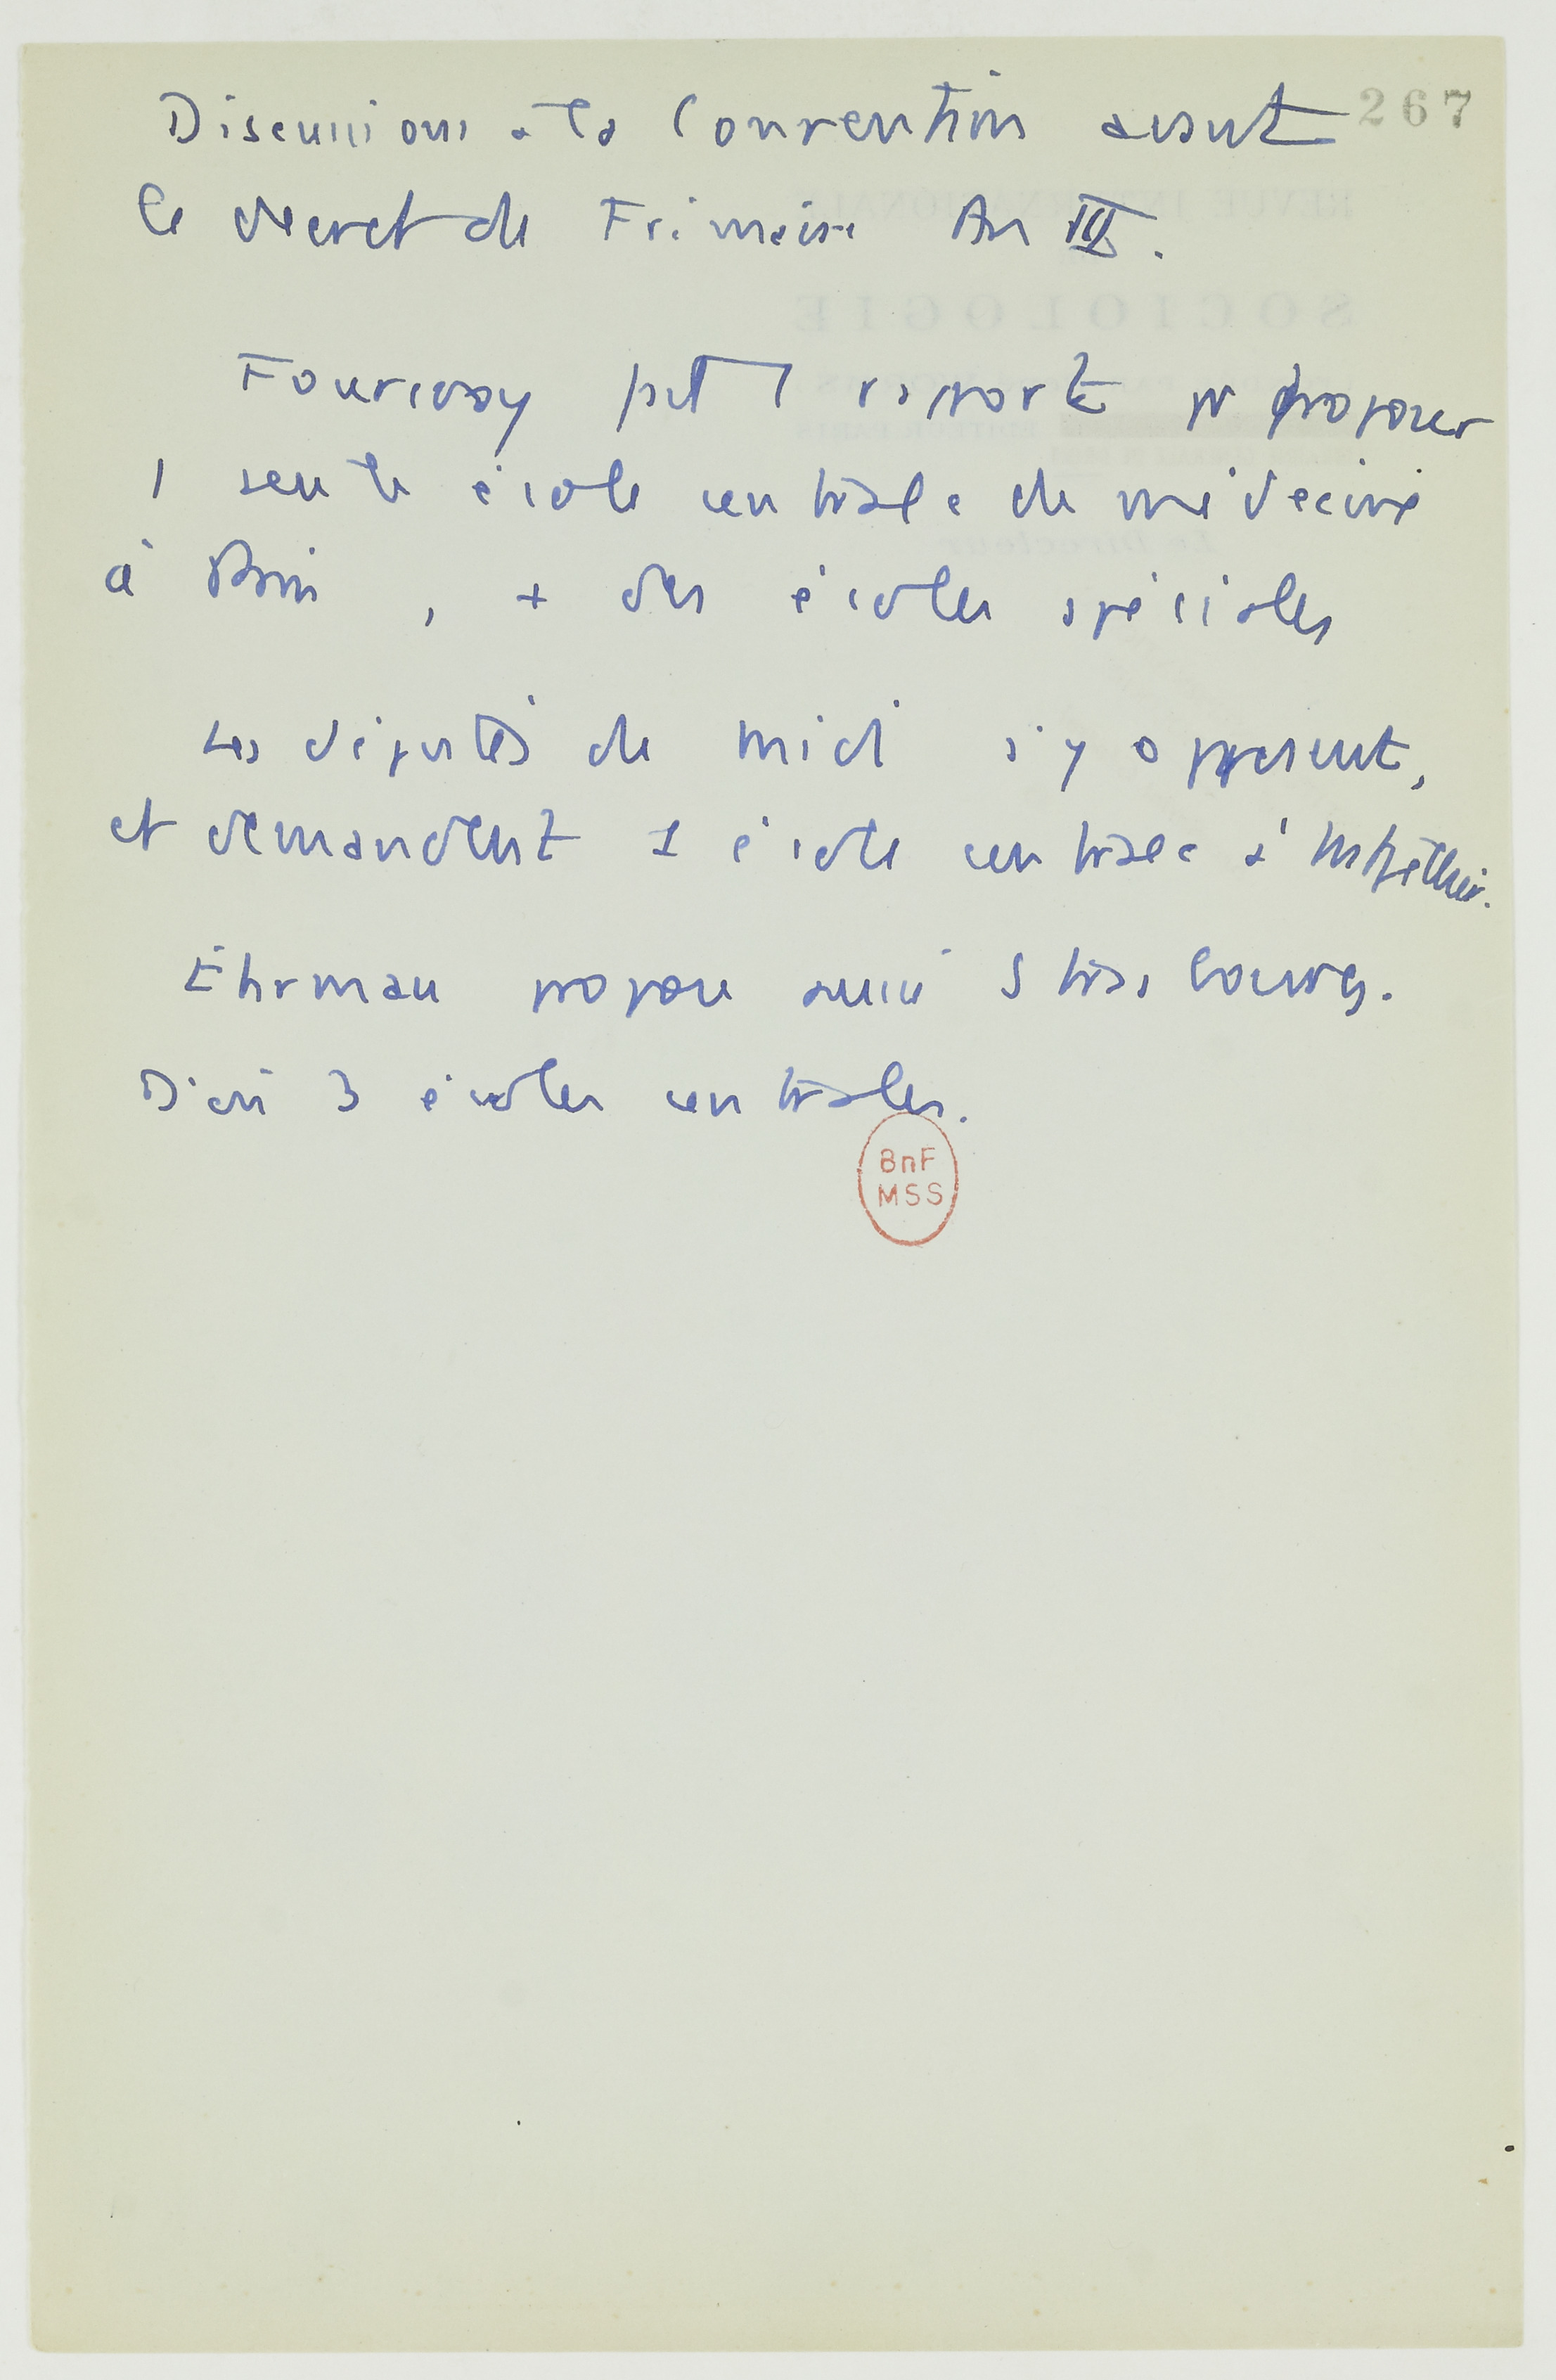 267
Discussions à la Convention avant
le decret de Frimaire An III.
Fourcroy fait 1 rapport pr proposer
1 seule école centrale de médecine
à Paris, + des écoles spéciales
Les députés de Midi s'y opposent,
et demandent 1 école centrale à Mtpellier.
Ehrman propose aussi Strasbourg.
D'où 3 écoles centrales.
BnF
MSS